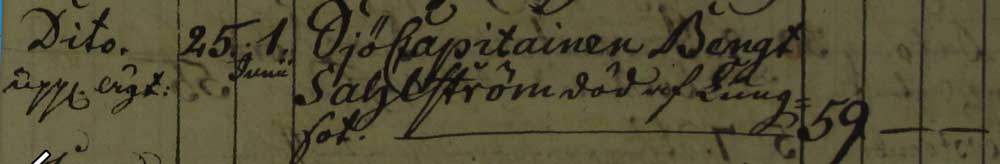 Dito. 25. 1. Sjö Capitainen Bengt
upp. ext: Junii Sahlström död af Lung=
sot. 59 — —